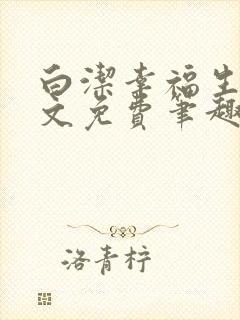 白潔幸福生
文免費筆趣
洛青柠